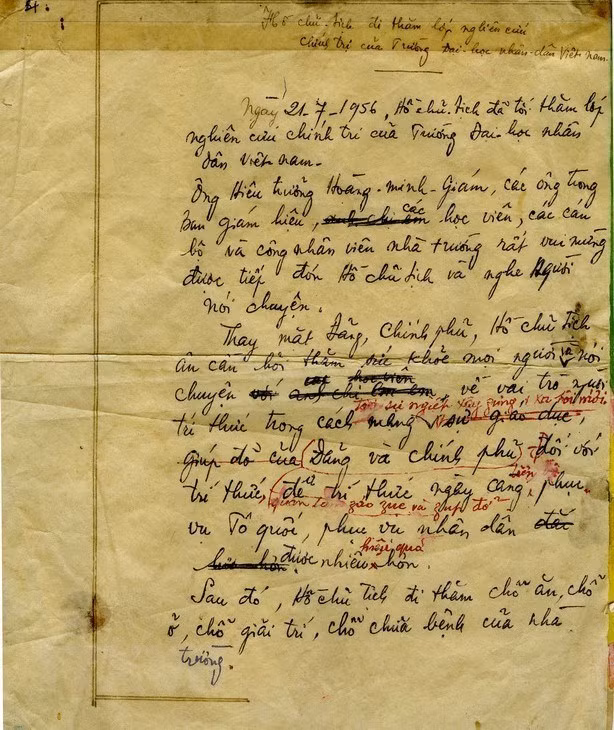 Hồ chủ-tịch đi thăm lớp nghiên cứu
chính trị của Trường Đại-học nhân-dân Việt nam.
Ngày 21-7-1956, Hồ chủ tịch đã tới thăm lớp
nghiên cứu chính trị của Trường Đại-học nhân
dân Việt-nam.
Ông Hiệu trưởng Hoàng-minh-Giám, các ông trong
Ban giám hiệu, các học viên, các cán
bộ và công nhân viên nhà trường rất vui mừng
được tiếp đón Hồ chủ tịch và nghe Người
nói chuyện.
Thay mặt Đảng, Chính phủ, Hồ chủ tịch
ân cần hỏi thăm sức khỏe mọi người và nói
chuyện về vai trò người
trong sự nghiệp xây dựng xã hội mới
trí thức trong cách mạng, sự giáo dục,
giúp đỡ của Đảng và chính phủ đối với
trí thức, để trí thức ngày càng phục
quan tâm giáo dục và giúp đỡ
vụ Tổ quốc, phục vụ nhân dân
hiệu quả
được nhiều hơn.
Sau đó, Hồ chủ tịch đi thăm chỗ ăn, chỗ
ở, chỗ giải trí, chỗ chữa bệnh của nhà
trường.